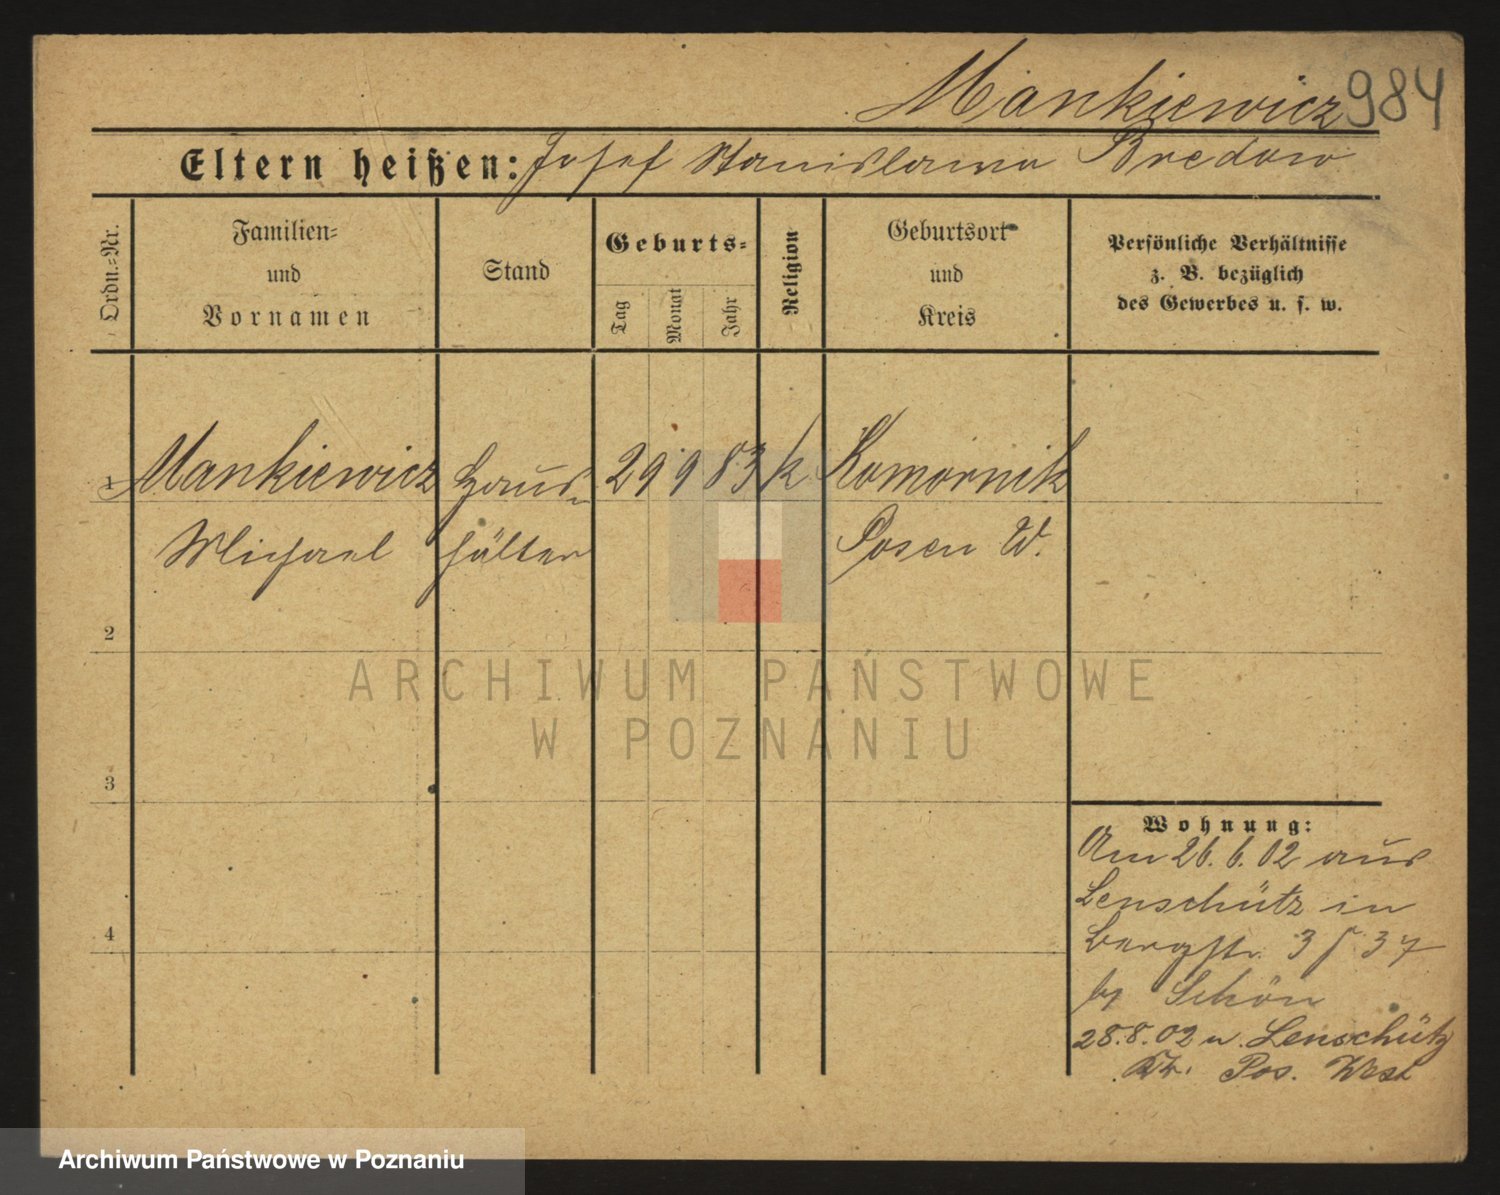 Mankiewicz 984
Eltern heißen: Josef Stanislawa Bredow
Ordn.-Nr.
Familien-
und
Vornamen
Stand
Geburts-
Tag
Monat
Jahr
Religion
Geburtsort
und
Kreis
Persönliche Verhältnisse
z. B. bezüglich
des Gewerbes u. s. w.
1 Mankiewicz Haus- 29 9 83 k Komornik
Michael hälter Posen W.
2
ARCHIWUM PAŃSTWOWE
W POZNANIU
3
Wohnung:
Am 26.6.02 aus
Lenschütz in
Bergstr. 37
Schön
28.8.02 n. Lenschütz
Kr. Pos. West
4
Archiwum Państwowe w Poznaniu